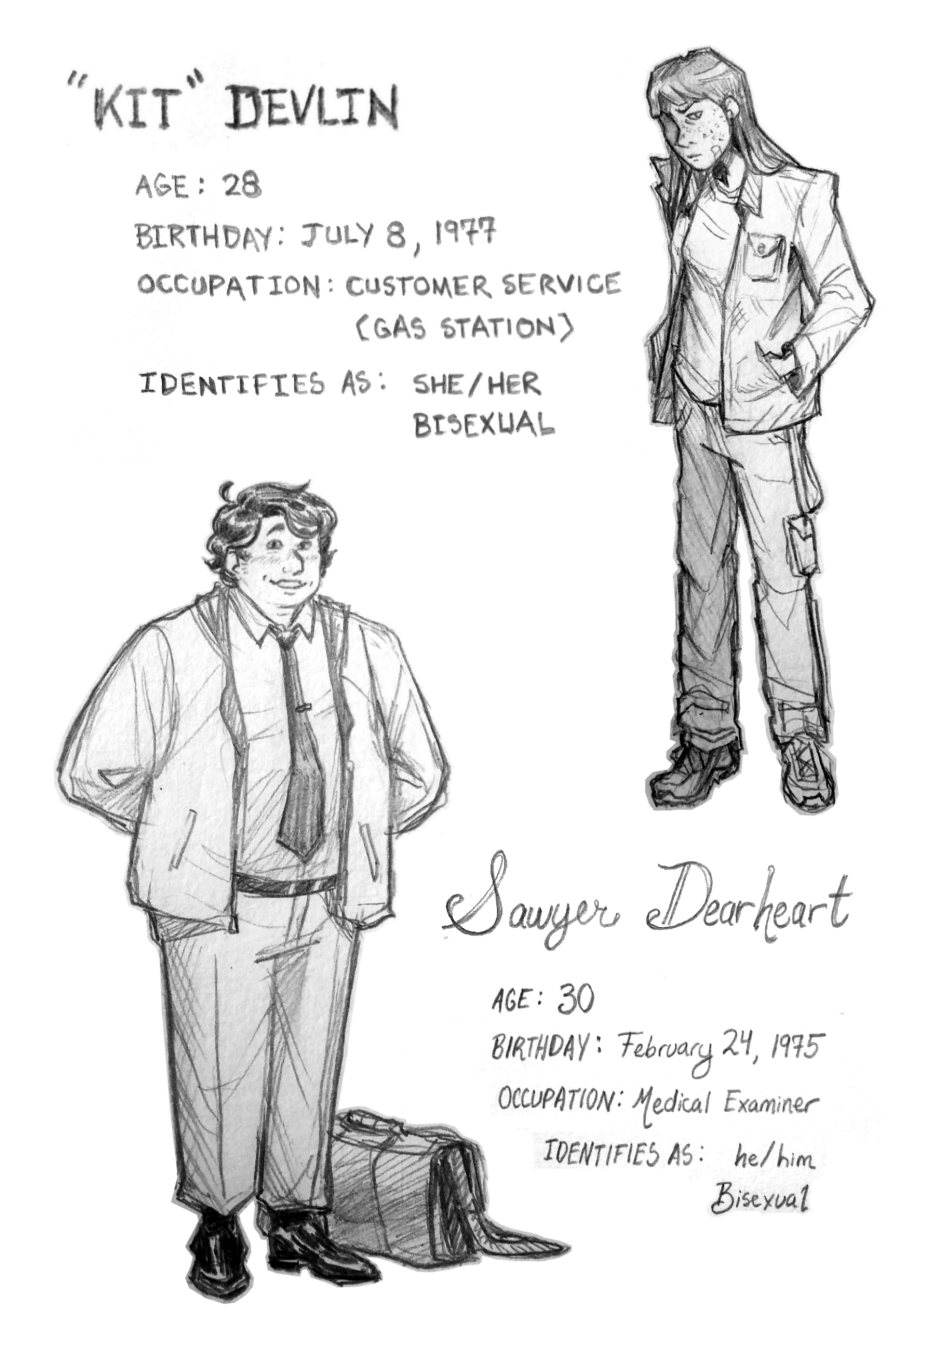 "KIT" DEVLIN
AGE: 28
BIRTHDAY: JULY 8, 1977
OCCUPATION: CUSTOMER SERVICE
(GAS STATION)
IDENTIFIES AS: SHE/HER
BISEXUAL
Sawyer Dearheart
AGE: 30
BIRTHDAY: February 24, 1975
OCCUPATION: Medical Examiner
IDENTIFIES AS: he/him
Bisexual